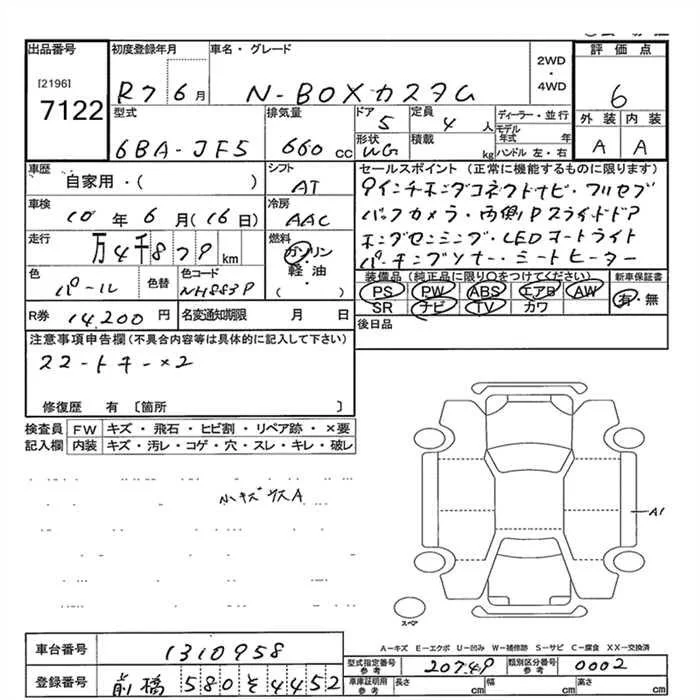 出品番号 初度登録年月 車名・グレード 2WD・4WD 評価点
[2196]
7122 R7 6月 N-BOXカスタム 6
型式 排気量 ドア 定員 ディーラー・並行 外装 内装
6BA-JF5 660cc 5 4人 モデル年式 年 A A
形状 WG 積載 kg ハンドル 左・右
車歴 自家用・( ) シフト AT
セールスポイント (正常に機能するものに限ります)
9インチホンダコネクトナビ・フルセグ
バックカメラ・両側Pスライドドア
ホンダセンシング・LEDオートライト
パーキングソナー・シートヒーター
車検 10年 6月 (16日) 冷房 AAC
走行 万4千879km 燃料 ガソリン・軽油 ( )
色 パール 色替 色コード NH883P
装備品 (純正品に限り○をつけてください) 新車保証書
PS PW ABS エアB AW 有・無
SR ナビ TV カワ
R券 14,200円 名変通知期限 月 日
後日品
注意事項申告欄 (不具合内容等は具体的に記入して下さい)
スマートキー×2
修復歴 有 〔箇所 〕
検査員 FW キズ・飛石・ヒビ割・リペア跡・×要
記入欄 内装 キズ・汚レ・コゲ・穴・スレ・キレ・破レ
小キズ ウスA
A1
スペア
A-キズ E-エクボ U-凹み W-補修跡 S-サビ C-腐食 XX-交換済
車台番号 1310958
型式指定番号 参考 20749 類別区分番号 参考 0002
登録番号 前橋 580 そ 4452
車庫証明用 参考 長さ cm 幅 cm 高さ cm